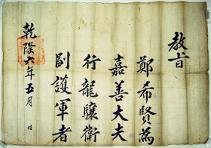 教旨
鄭希賢為
嘉善大夫
行龍驤衛
副護軍者
乾隆六年五月 日